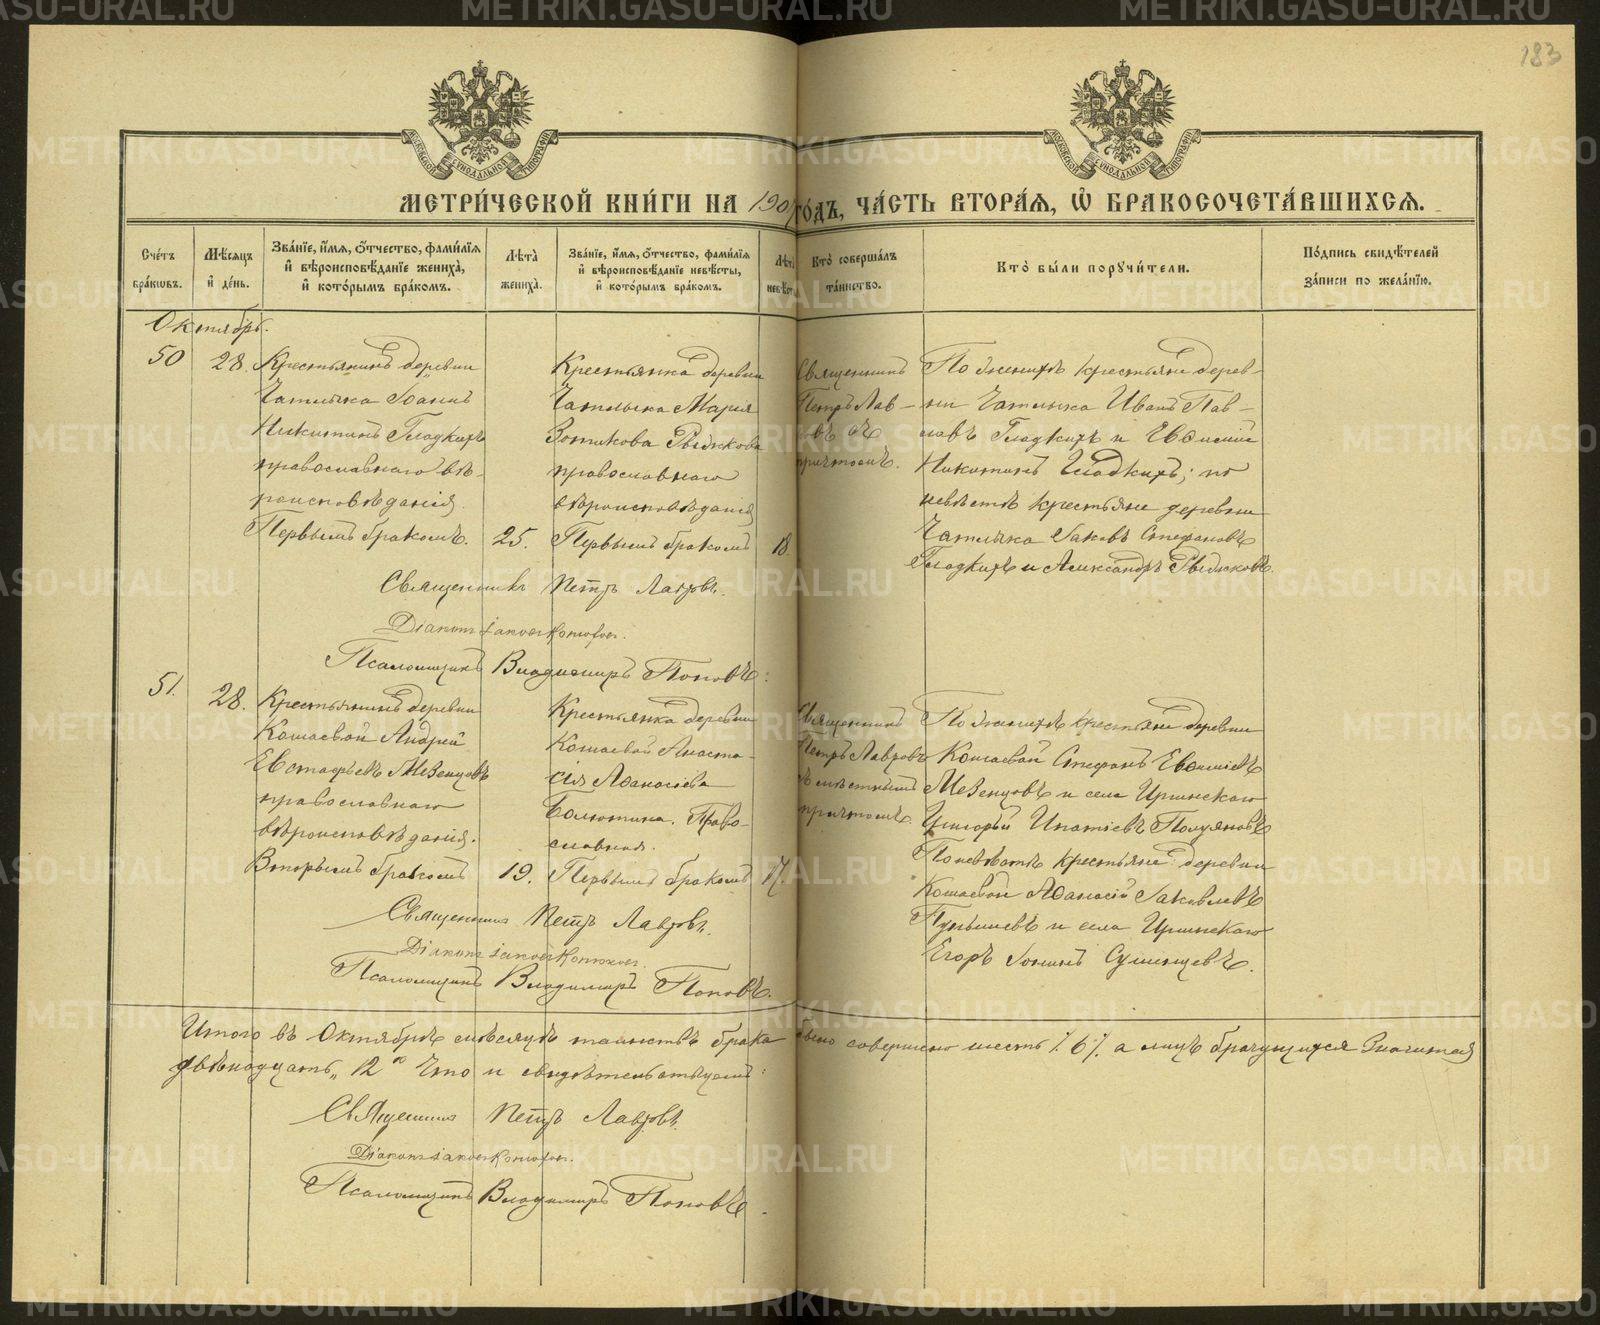 183
МЕТРИ́ЧЕСКОЙ КНИ́ГИ НА 190 ГО́ДЪ, ЧА́СТЬ ВТОРА́Я, Ѡ БРАКОСОЧЕТА́ВШИХСЯ.
Сче́тъ бра́кѡвъ.
Мѣ́сяцъ и де́нь.
Зва́нїе, и́мя, ѻ́тчество, фами́лїя и вѣроисповѣ́данїе жениха̀, и кото́рымъ бра́комъ.
Лѣ́та жениха̀.
Зва́нїе, и́мя, ѻ́тчество, фами́лїя и вѣроисповѣ́данїе невѣ́сты, и кото́рымъ бра́комъ.
Лѣ́та невѣ́сты
Кто̀ соверша́лъ та́инство.
Кто̀ бы́ли порꙋчи́тели.
По́дпись свидѣ́телей за́писи по жела́нїю.
Октябрь.
50
28.
Крестьянинъ деревни
Чатлыка Іоаннъ
Никитинъ Гладкихъ
православнаго вѣ-
роисповѣданія.
Первымъ бракомъ.
25.
Крестьянка деревни
Чатлыка Марія
Зотикова Рыжкова
православнаго
вѣроисповѣданія
Первымъ бракомъ
18.
Священникъ
Петръ Лав-
ровъ съ
причтомъ.
По женихѣ крестьяне дерев-
ни Чатлыка Иванъ Пав-
ловъ Гладкихъ и Евѳимій
Никитинъ Гладкихъ; по
невѣстѣ крестьяне деревни
Чатлыка Іаковъ Стефановъ
Гладкихъ и Александръ Рыжковъ.
Священникъ Петръ Лавровъ.
Псаломщикъ Владимиръ Поповъ.
51.
28.
Крестьянинъ деревни
Кошаевой Андрей
Евстафьевъ Мезенцовъ
православнаго
вѣроисповѣданія.
Вторымъ бракомъ
19.
Крестьянка деревни
Кошаевой Анаста-
сія Аѳанасіева
Право-
славная.
Первымъ бракомъ
17.
Священникъ
Петръ Лавровъ
съ мѣстнымъ
причтомъ.
По женихѣ крестьяне деревни
Кошаевой Стефанъ Евѳиміевъ
Мезенцовъ и села Иргинскаго
Григорій Ипатіевъ Полуяновъ
По невѣстѣ крестьяне деревни
Кошаевой Аѳанасій Іаковлевъ
и села Иргинскаго
Егоръ Іонинъ
Священникъ Петръ Лавровъ.
Псаломщикъ Владимиръ Поповъ.
Итого въ Октябрѣ мѣсяцѣ таинствъ брака было совершено шесть /6/, а лицъ брачущихся значится
двѣнадцать „12" Что и свидѣтельствуемъ:
Священникъ Петръ Лавровъ.
Псаломщикъ Владимиръ Поповъ.
METRIKI.GASO-URAL.RU